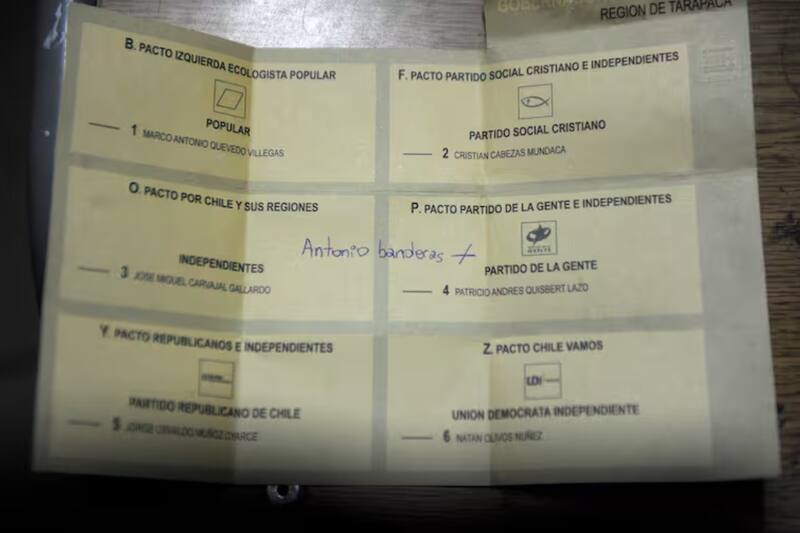 GOBERNA
REGION DE TARAPACA
B. PACTO IZQUIERDA ECOLOGISTA POPULAR
POPULAR
1 MARCO ANTONIO QUEVEDO VILLEGAS
F. PACTO PARTIDO SOCIAL CRISTIANO E INDEPENDIENTES
PARTIDO SOCIAL CRISTIANO
2 CRISTIAN CABEZAS MUNDACA
O. PACTO POR CHILE Y SUS REGIONES
INDEPENDIENTES
3 JOSE MIGUEL CARVAJAL GALLARDO
Antonio banderas +
P. PACTO PARTIDO DE LA GENTE E INDEPENDIENTES
PARTIDO DE LA GENTE
4 PATRICIO ANDRES QUISBERT LAZO
Y. PACTO REPUBLICANOS E INDEPENDIENTES
PARTIDO REPUBLICANO DE CHILE
5 JORGE OSVALDO MUÑOZ OYARCE
Z. PACTO CHILE VAMOS
UDI
UNION DEMOCRATA INDEPENDIENTE
6 NATAN OLIVOS NUÑEZ